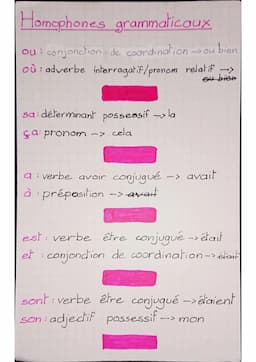 Homophones grammaticaux
ou : conjonction de coordination -> ou bien
où : adverbe interrogatif/pronom relatif ->
ou bien
sa : déterminant possessif -> la
ça : pronom -> cela
a : verbe avoir conjugué -> avait
à : préposition -> avait
est : verbe être conjugué -> était
et : conjonction de coordination -> était
sont : verbe être conjugué -> étaient
son : adjectif possessif -> mon